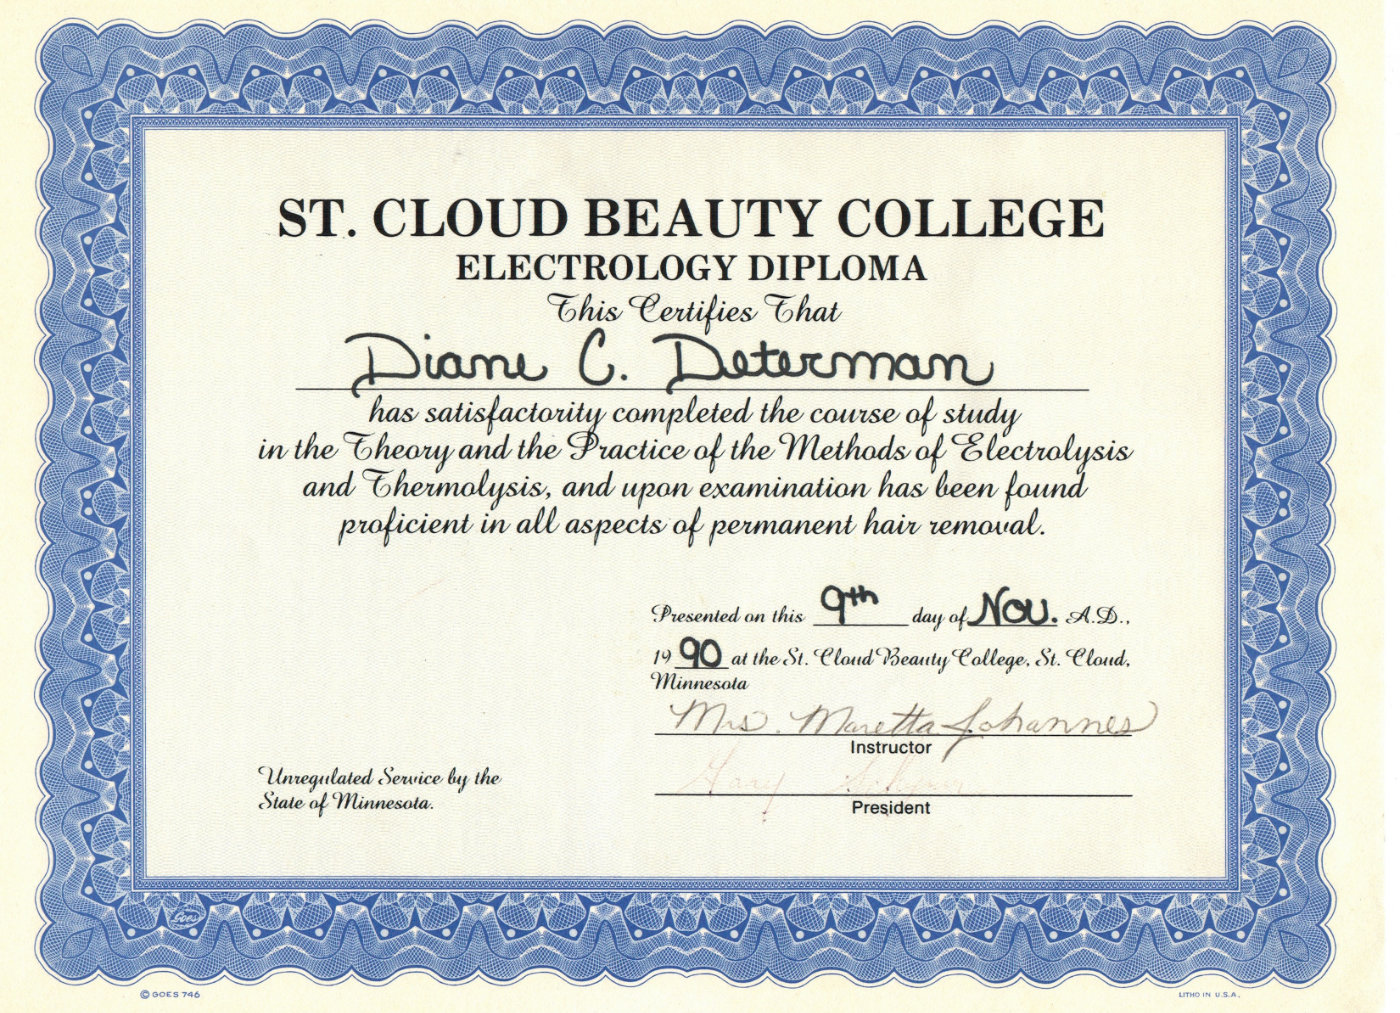 ST. CLOUD BEAUTY COLLEGE
ELECTROLOGY DIPLOMA
This Certifies That
Diane C. Determan
has satisfactority completed the course of study
in the Theory and the Practice of the Methods of Electrolysis
and Thermolysis, and upon examination has been found
proficient in all aspects of permanent hair removal.
Presented on this 9th day of Nov. A.D.,
19 90 at the St. Cloud Beauty College, St. Cloud,
Minnesota
Mrs. Maretta Johannes
Instructor
Gary
President
Unregulated Service by the
State of Minnesota.
Goes
© GOES 746
LITHO IN U.S.A.